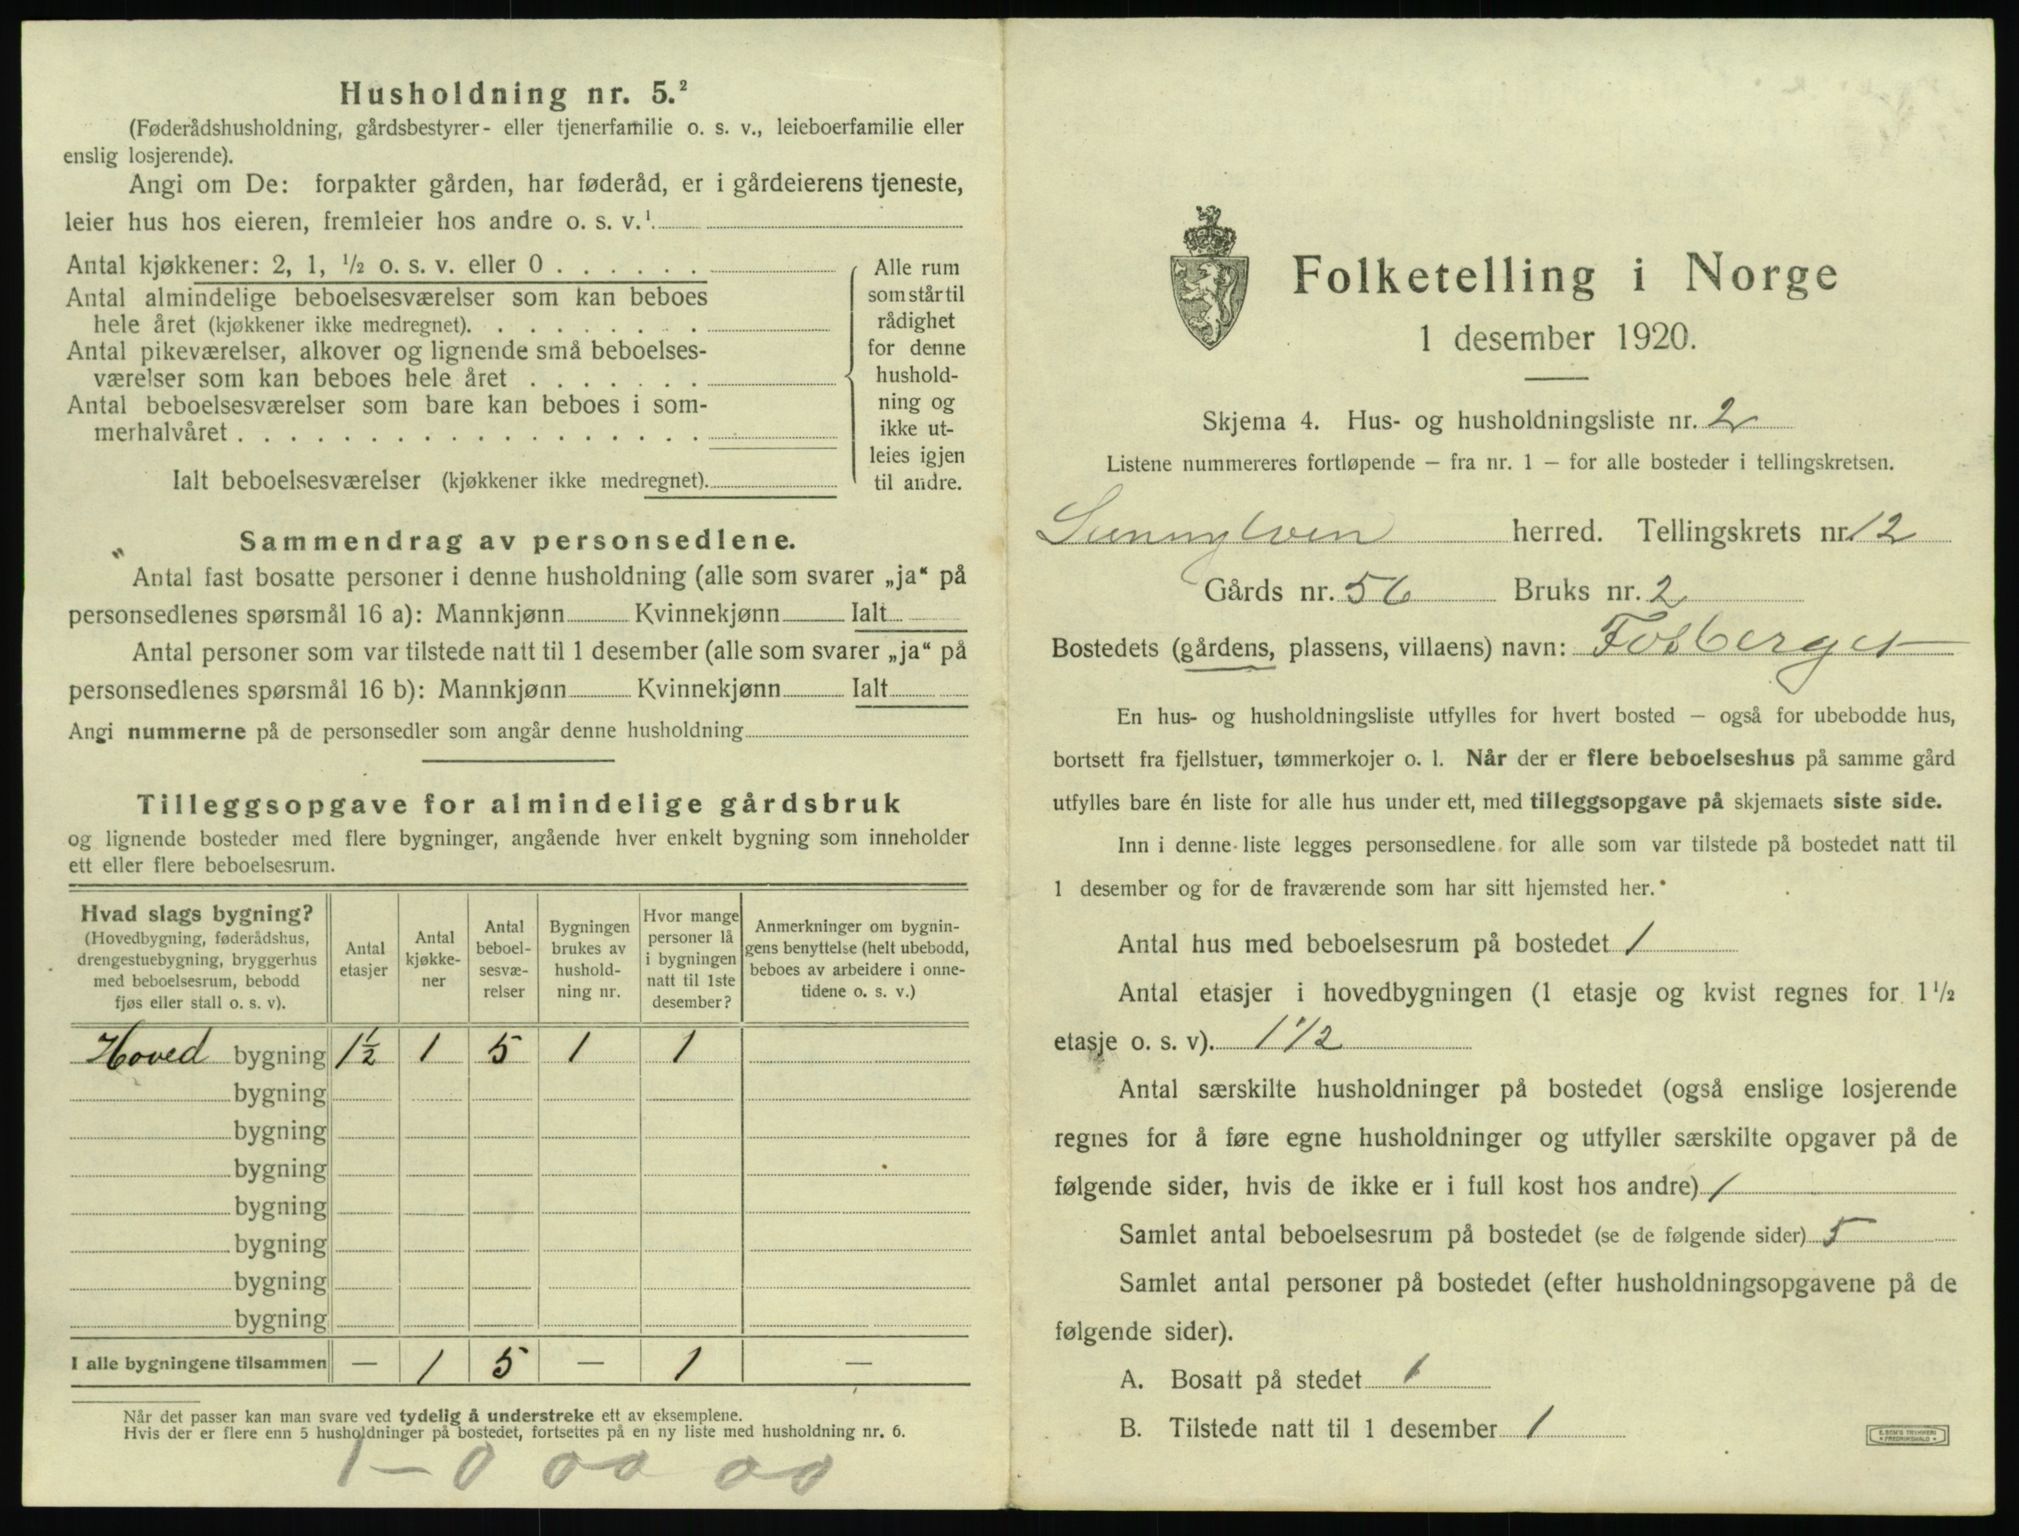 Husholdning nr. 5.²
(Føderådshusholdning, gårdsbestyrer- eller tjenerfamilie o. s. v., leieboerfamilie eller
enslig losjerende).
Angi om De: forpakter gården, har føderåd, er i gårdeierens tjeneste,
leier hus hos eieren, fremleier hos andre o. s. v.¹
Antal kjøkkener: 2, 1, ½ o. s. v. eller 0 . . . . . .
Antal almindelige beboelsesværelser som kan beboes
hele året (kjøkkener ikke medregnet). . . . . . . . .
Antal pikeværelser, alkover og lignende små beboelses-
værelser som kan beboes hele året . . . . . . .
Antal beboelsesværelser som bare kan beboes i som-
merhalvåret . . . . . . . . . . . . . . . . . .
Ialt beboelsesværelser (kjøkkener ikke medregnet).
Alle rum
som står til
rådighet
for denne
hushold-
ning og
ikke ut-
leies igjen
til andre.
Sammendrag av personsedlene.
Antal fast bosatte personer i denne husholdning (alle som svarer „ja“ på
personsedlenes spørsmål 16 a): Mannkjønn Kvinnekjønn Ialt
Antal personer som var tilstede natt til 1 desember (alle som svarer „ja“ på
personsedlenes spørsmål 16 b): Mannkjønn Kvinnekjønn Ialt
Angi nummerne på de personsedler som angår denne husholdning
Tilleggsopgave for almindelige gårdsbruk
og lignende bosteder med flere bygninger, angående hver enkelt bygning som inneholder
ett eller flere beboelsesrum.
Hvad slags bygning?
(Hovedbygning, føderådshus,
drengestuebygning, bryggerhus
med beboelsesrum, bebodd
fjøs eller stall o. s. v).
Antal
etasjer
Antal
kjøkke-
ner
Antal
beboel-
sesvæ-
relser
Bygningen
brukes av
hushold-
ning nr.
Hvor mange
personer lå
i bygningen
natt til 1ste
desember?
Anmerkninger om bygnin-
gens benyttelse (helt ubebodd,
beboes av arbeidere i onne-
tidene o. s. v.)
Hoved bygning 1½ 1 5 1 1
bygning
bygning
bygning
bygning
bygning
bygning
bygning
I alle bygningene tilsammen — 1 5 — 1 —
Når det passer kan man svare ved tydelig å understreke ett av eksemplene.
Hvis der er flere enn 5 husholdninger på bostedet, fortsettes på en ny liste med husholdning nr. 6.
1 – 0 00 00
Folketelling i Norge
1 desember 1920.
Skjema 4. Hus- og husholdningsliste nr. 2
Listene nummereres fortløpende – fra nr. 1 – for alle bosteder i tellingskretsen.
Sunnylven herred. Tellingskrets nr. 12
Gårds nr. 56 Bruks nr. 2
Bostedets (gårdens, plassens, villaens) navn: Fosberget
En hus- og husholdningsliste utfylles for hvert bosted – også for ubebodde hus,
bortsett fra fjellstuer, tømmerkojer o. l. Når der er flere beboelseshus på samme gård
utfylles bare én liste for alle hus under ett, med tilleggsopgave på skjemaets siste side.
Inn i denne liste legges personsedlene for alle som var tilstede på bostedet natt til
1 desember og for de fraværende som har sitt hjemsted her.
Antal hus med beboelsesrum på bostedet 1
Antal etasjer i hovedbygningen (1 etasje og kvist regnes for 1½
etasje o. s. v). 1 1/2
Antal særskilte husholdninger på bostedet (også enslige losjerende
regnes for å føre egne husholdninger og utfyller særskilte opgaver på de
følgende sider, hvis de ikke er i full kost hos andre) 1
Samlet antal beboelsesrum på bostedet (se de følgende sider) 5
Samlet antal personer på bostedet (efter husholdningsopgavene på de
følgende sider).
A. Bosatt på stedet 1
B. Tilstede natt til 1 desember 1
E. SEM'S TRYKKERI
FREDRIKSHALD